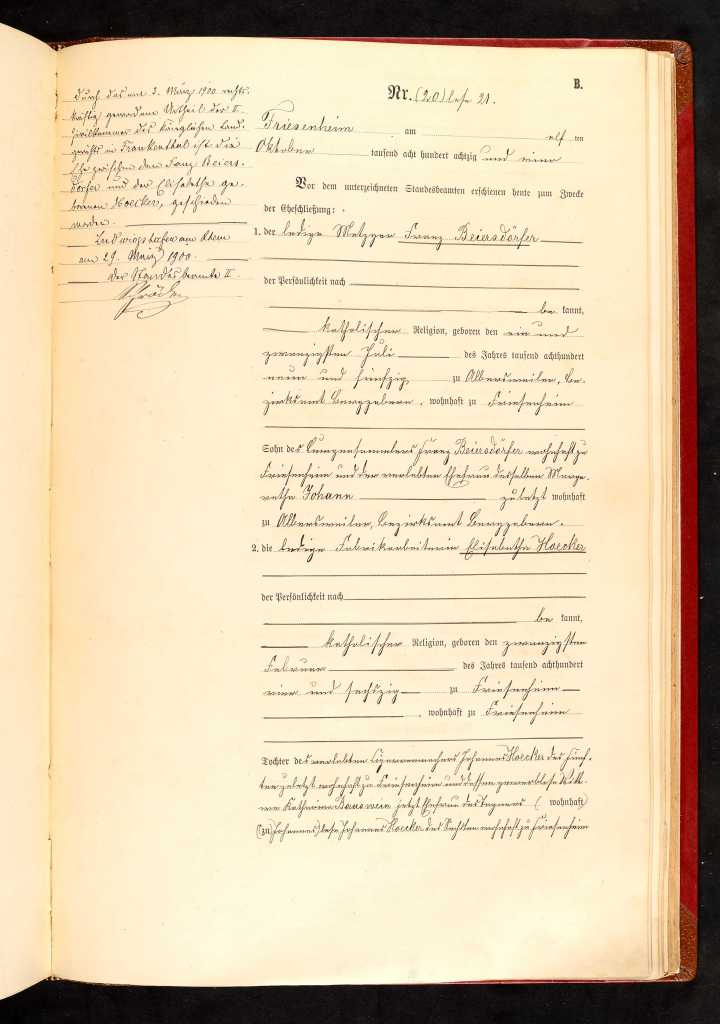 B.
Durch das am 3. März 1900 rechts-
kräftig gewordene Urtheil der II.
Zivilkammer des Königlichen Land-
gerichts in Frankenthal ist die
Ehe zwischen den Franz Beiers-
dörfer und der Elisabetha ge-
borenen Hoecker, geschieden
worden.
Ludwigshafen am Rhein
am 29. März 1900.
Der Standesbeamte II.
Nr. (20) lese 21.
Friesenheim am elf ten
Oktober tausend acht hundert achtzig und einer
Vor dem unterzeichneten Standesbeamten erschienen heute zum Zwecke
der Eheschließung:
1. der ledige Metzger Franz Beiersdörfer
der Persönlichkeit nach
be kannt,
katholischer Religion, geboren den ein und
zwanzigsten Juli des Jahres tausend achthundert
neun und fünfzig zu Albersweiler, Be-
zirksamt Bergzabern, wohnhaft zu Friesenheim
Sohn des Lumpensammlers Franz Beiersdörfer wohnhaft zu
Friesenheim und der verlebten Ehefrau desselben Marga-
retha Johann zuletzt wohnhaft
zu Albersweiler, Bezirksamt Bergzabern.
2. die ledige Fabrikarbeiterin Elisabetha Hoecker
der Persönlichkeit nach
be kannt,
katholischer Religion, geboren den zwanzigsten
Februar des Jahres tausend achthundert
vier und sechszig zu Friesenheim
, wohnhaft zu Friesenheim
Tochter des verlebten Cigarrenmachers Johannes Hoecker des Fünf-
ten zuletzt wohnhaft zu Friesenheim und dessen gewerblose Witt-
we Katharina jetzt Ehefrau des (wohnhaft)
(zu) Johannes) lese Johannes Hoecker des Sechsten wohnhaft zu Friesenheim